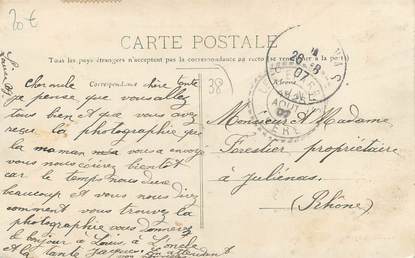 20 €
CARTE POSTALE
Tous les pays étrangers n'acceptent pas la correspondance au recto (se renseigner à la poste)
Correspondance
38
26 -8
07
ISÈRE
chère tante
je pense que vous allez
tous bien et que vous avez
reçu la photographie que
la maman vous a envoyé
vous nous écrirez bientôt
car le temps nous dure
beaucoup et vous nous direz
comment vous trouvez la
photographie vous donnerez
le bonjour à Louis, à l'oncle
et la tante Jacques
Monsieur et Madame
Forestier propriétaire
à Juliénas
(Rhône)